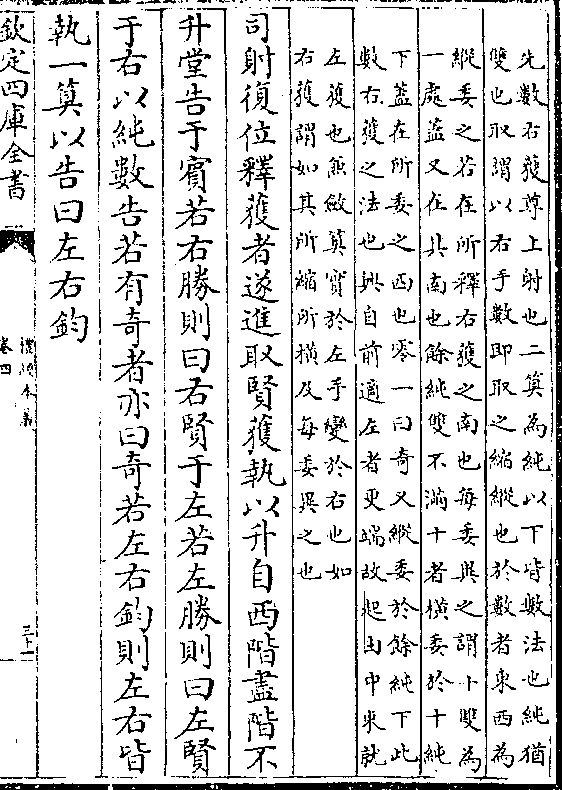 先數右獲尊上射也二算為純以下皆數法也純猶
雙也取謂以右手數即取之縮縱也於數者東西為
縱委之若在所釋右獲之南也每委異之謂十雙為
一處蓋又在其南也餘純雙不滿十者橫委於十純
下蓋在所委之西也零一曰奇又縱委於餘純下此
數右獲之法也興自前適左者更端故起由中來就
左獲也無斂算實於左手變於右也如
右獲謂如其所縮所橫及每委異之也
司射復位釋獲者遂進取賢獲執以升自西階盡階不
升堂告于賓若右勝則曰右賢于左若左勝則曰左賢
于右以純數告若有奇者亦曰奇若左右鈞則左右皆
執一算以告曰左右鈞
欽定四庫全書
卷四
三十一